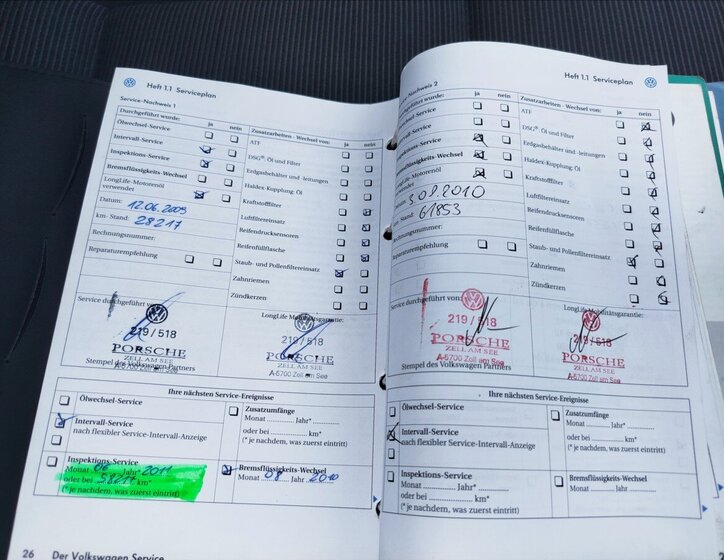 Heft 1.1 Serviceplan
Service-Nachweis 1
Durchgeführt wurde: ja nein
Ölwechsel-Service
Intervall-Service
Inspektions-Service
Bremsflüssigkeits-Wechsel
LongLife-Motorenöl verwendet
Datum: 12.06.2009
km-Stand: 28217
Rechnungsnummer:
Reparaturempfehlung
Zusatzarbeiten - Wechsel von: ja nein
ATF
DSG®-Öl und Filter
Erdgasbehälter und -leitungen
Haldex-Kupplung: Öl
Kraftstofffilter
Luftfiltereinsatz
Reifendrucksensoren
Reifenfüllflasche
Staub- und Pollenfiltereinsatz
Zahnriemen
Zündkerzen
Service durchgeführt von:
219 / 518
PORSCHE
ZELL AM SEE
A-5700 Zell am See
Stempel des Volkswagen Partners
LongLife Mobilitätsgarantie:
219 / 518
PORSCHE
ZELL AM SEE
A-5700 Zell am See
Ihre nächsten Service-Ereignisse
Ölwechsel-Service
Intervall-Service
nach flexibler Service-Intervall-Anzeige
Inspektions-Service
Monat 06 Jahr* 2011
oder bei 58217 km*
(* je nachdem, was zuerst eintritt)
Zusatzumfänge
Monat Jahr*
oder bei km*
(* je nachdem, was zuerst eintritt)
Bremsflüssigkeits-Wechsel
Monat 08 Jahr 2010
26 Der Volkswagen Service
Heft 1.1 Serviceplan
-Nachweis 2
wurde: ja nein
-Service
-Service
-Service
-Wechsel
LongLife-Motorenöl
Stand: 61853
Rechnungsnummer:
Reparaturempfehlung
Zusatzarbeiten - Wechsel von: ja nein
ATF
DSG®-Öl und Filter
Erdgasbehälter und -leitungen
Haldex-Kupplung: Öl
Kraftstofffilter
Luftfiltereinsatz
Reifendrucksensoren
Reifenfüllflasche
Staub- und Pollenfiltereinsatz
Zahnriemen
Zündkerzen
Service durchgeführt von:
219 / 518
PORSCHE
ZELL AM SEE
A-5700 Zell am See
Stempel des Volkswagen Partners
LongLife Mobilitätsgarantie:
PORSCHE
ZELL AM SEE
A-5700 Zell am See
Ihre nächsten Service-Ereignisse
Ölwechsel-Service
Intervall-Service
nach flexibler Service-Intervall-Anzeige
Inspektions-Service
Monat Jahr*
oder bei km*
(* je nachdem, was zuerst eintritt)
Zusatzumfänge
Monat Jahr*
oder bei km*
(* je nachdem, was zuerst eintritt)
Bremsflüssigkeits-Wechsel
Monat Jahr